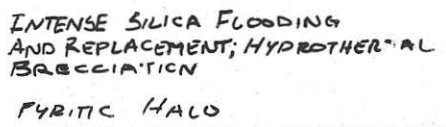 INTENSE SILICA FLOODING
AND REPLACEMENT; HYDROTHERMAL
BRECCIATION
PYRITIC HALO